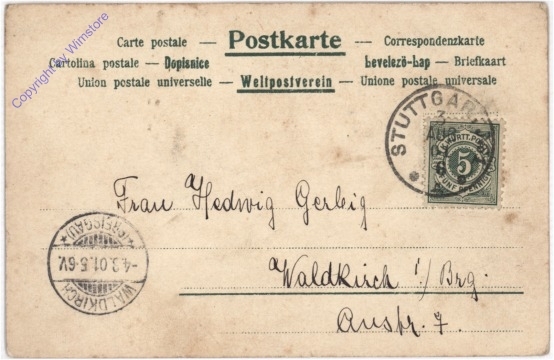 Copyright by Wimstore
Carte postale — Postkarte — Correspondenzkarte
Cartolina postale — Dopisnice
Levelező-Lap — Briefkaart
Union postale universelle — Weltpostverein — Unione postale universale
STUTTGART
3
AUG
K. WÜRTT. POST
5
FÜNF PFENNIG
Frau Hedwig Gerbig
Waldkirch i/Brg.
WALDKIRCH
(BREISGAU)
-4.01.5-6V.